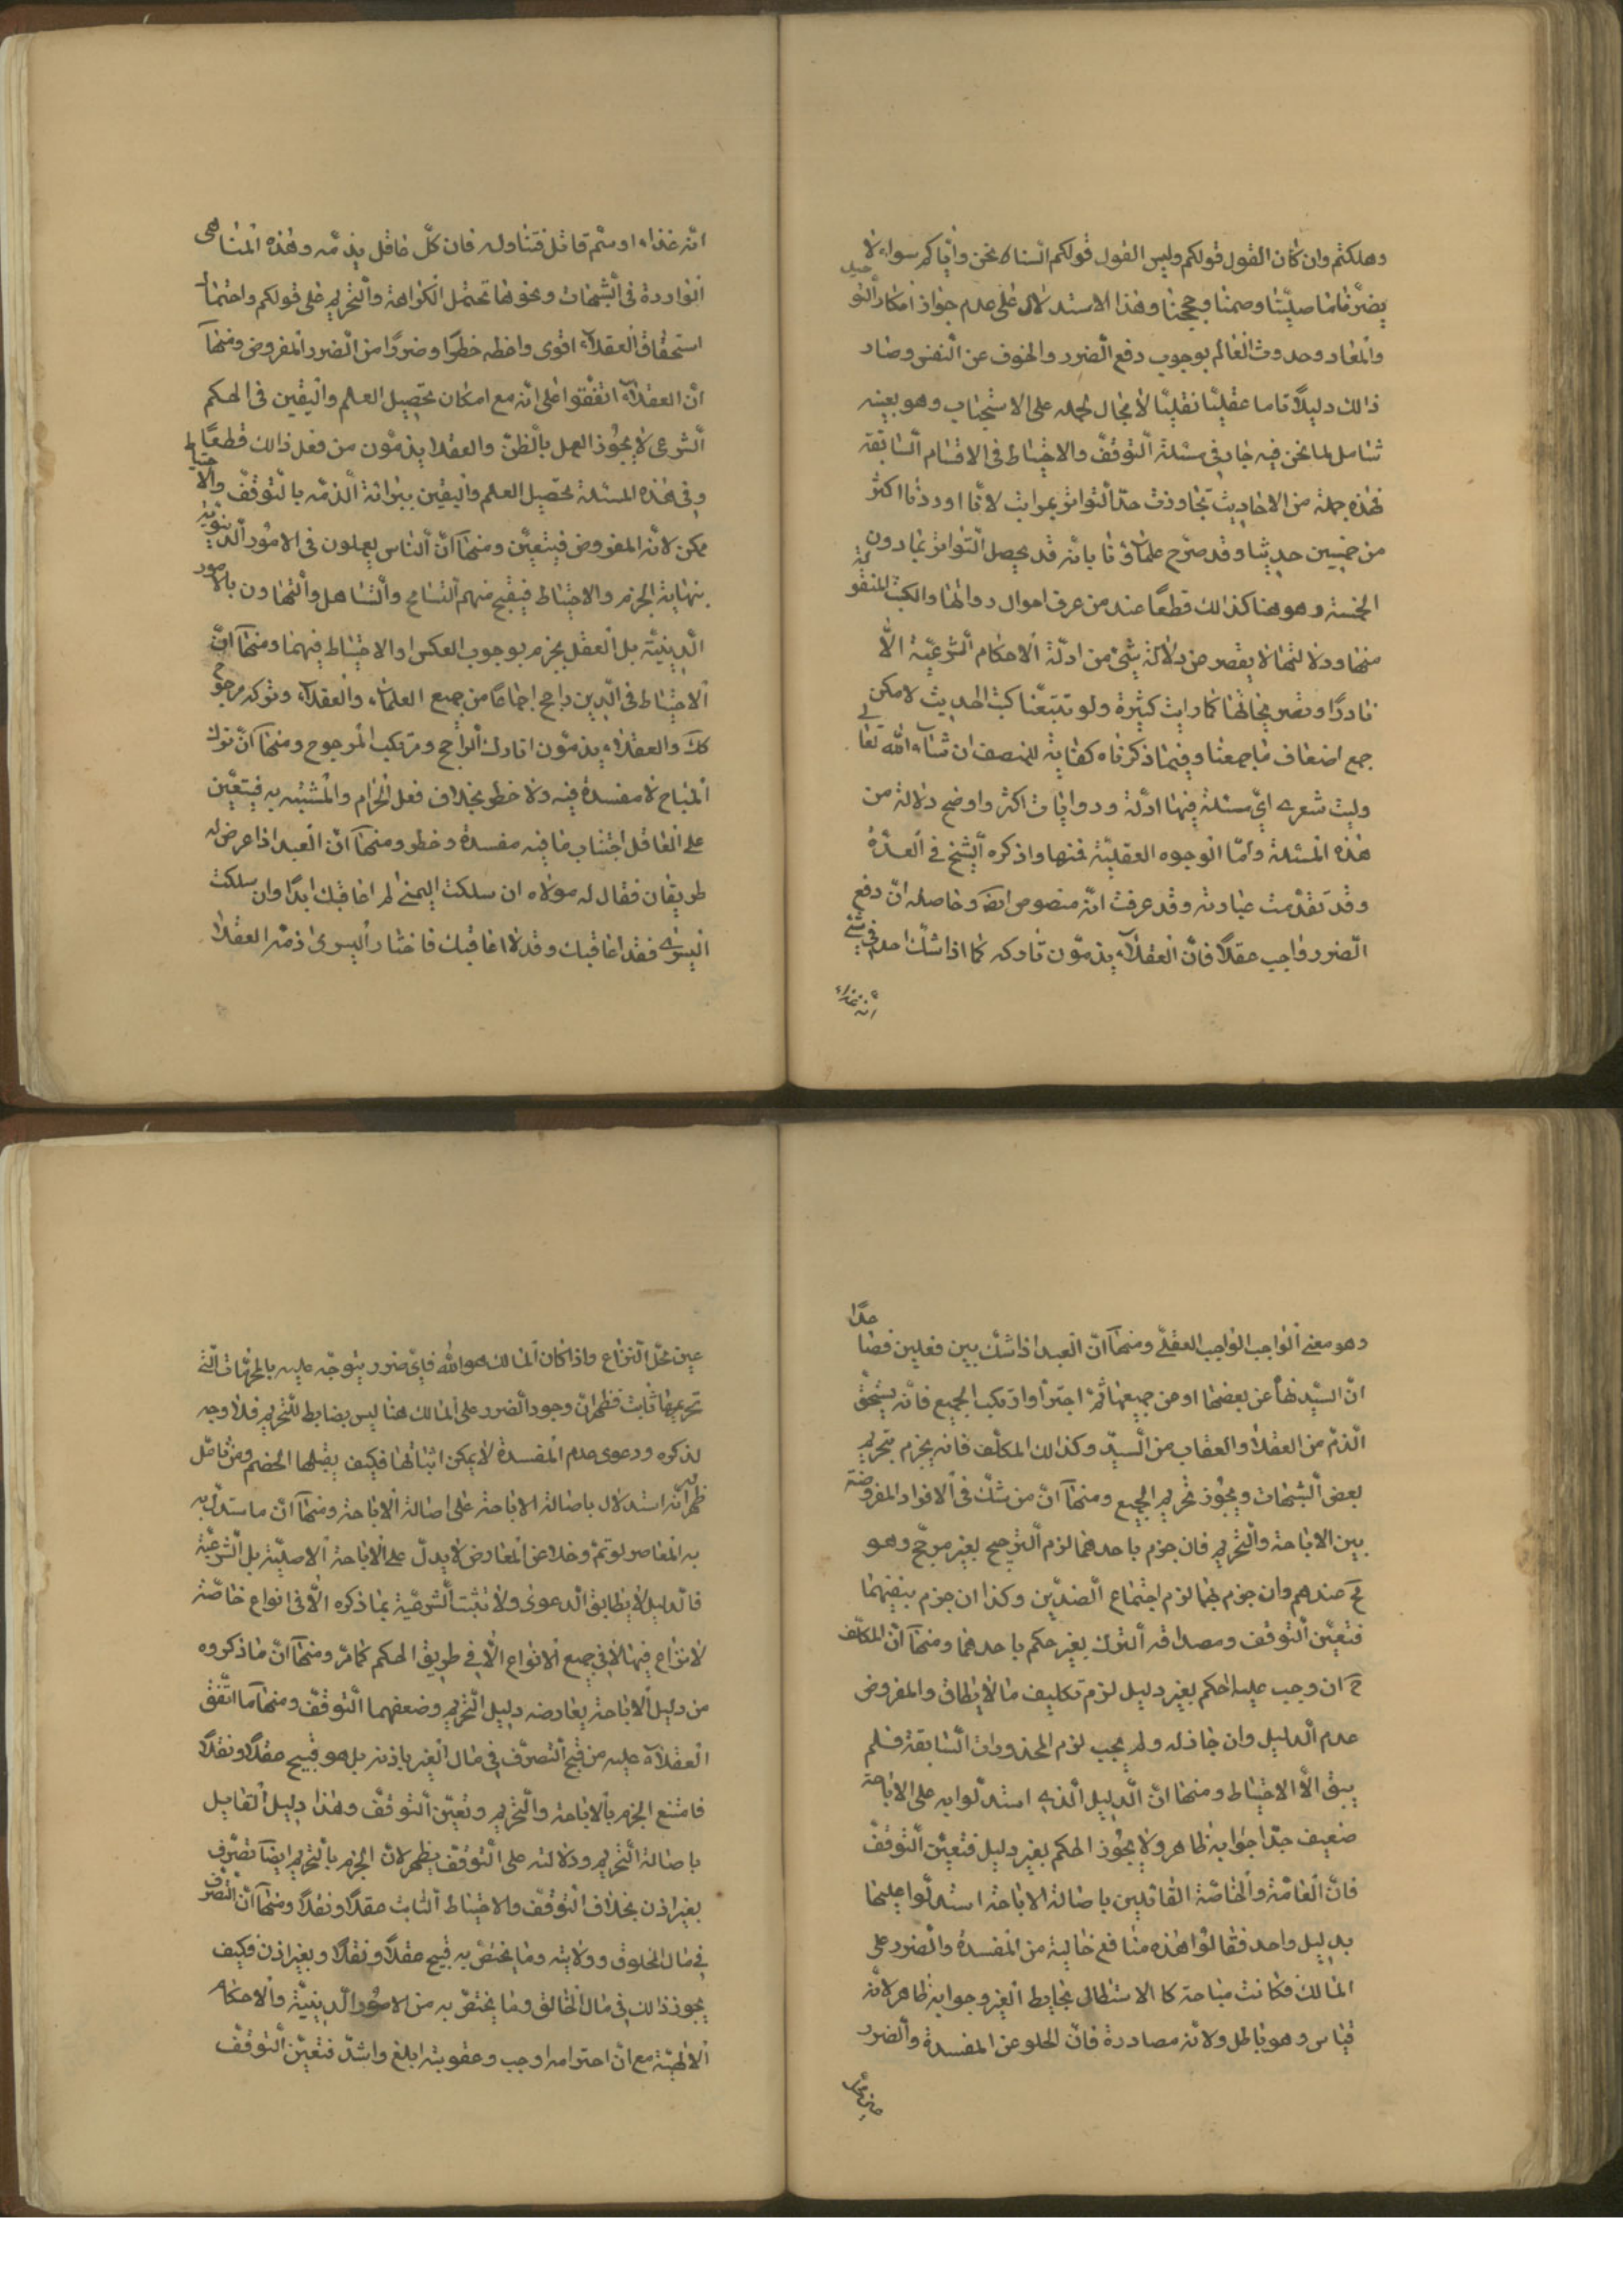 وهلكتم وان كان القول قولكم وليس القول قولكم السنا نحن واياكم سواء لا
يضرنا ما صلينا وصمنا وحججنا وهذا الاستدلال على عدم جواز انكار التوحيد
والمعاد وحدوث العالم بوجوب دفع الضرر والخوف عن النفس وصار
ذلك دليلا تاما عقليا نقليا لا مجال لحمله على الاستحباب وهو بعينه
شامل لما نحن فيه جار في مسئلة التوقف والاحتياط في الاقسام السابقة
فهذه جملة من الاحاديث تجاوزت حد التواتر بمراتب لانا اوردنا اكثر
من خمسين حديثا وقد صرح علماؤنا بانه قد يحصل التواتر بما دون
الخمسة وهو هنا كذلك قطعا عند من عرف احوال رواتها والكتب المنقولة
منها ودلالتها لا يقصر عن دلالة شئ من ادلة الاحكام الشرعية الا
نادرا ونص بخاتها كما رايت كثيرة ولو تتبعنا كتب الحديث لامكن
جمع اضعاف ما جمعنا وفيما ذكرناه كفاية للمنصف ان شاء الله تعالى
وليت شعرى اى مسئلة فيها ادلة وروايات اكثر واوضح دلالة من
هذه المسئلة واما الوجوه العقلية فمنها ما ذكره الشيخ في العدة
وقد تقدمت عبارته وقد عرفت انه منصوص ايضا وحاصله ان دفع
الضرر واجب عقلا فان العقلاء يذمون تاركه كما اذا شك احد في شئ
انه غذاء
انه غذاء او سم قاتل فتناوله فان كل عاقل يذمه وهذه المناهى
الواردة في الشبهات ونحوها تحتمل الكراهة والتحريم على قولكم واحتمال
استحقاق العقلاء اقوى واعظم خطرا وضررا من الضرر المفروض ومنها
ان العقلاء اتفقوا على انه مع امكان تحصيل العلم واليقين في الحكم
الشرعى لا يجوز العمل بالظن والعقلا يذمون من فعل ذلك قطعا
وفي هذه المسئلة تحصيل العلم واليقين ببرائة الذمه بالتوقف والاحتياط
ممكن لانه المفروض فيتعين ومنها ان الناس يعملون في الامور الدنيوية
بنهاية الحزم والاحتياط فيقبح منهم التسامح والتساهل والتهاون بالامور
الدينية بل العقل يجزم بوجوب العكس او الاحتياط فيهما ومنها ان
الاحتياط في الدين راجح اجماعا من جميع العلماء والعقلاء وتركه مرجوح
كك والعقلاء يذمون تارك الراجح ومرتكب المرجوح ومنها ان ترك
المباح لا مفسدة فيه ولا خطر بخلاف فعل الحرام والمشتبه به فيتعين
على العاقل اجتناب ما فيه مفسدة وخطر ومنها ان العبد اذا عرض له
طريقان فقال له مولاه ان سلكت اليمنى لم اعاقبك ابدا وان سلكت
اليسرى فقد اعاقبك وقد لا اعاقبك فاختار اليسرى ذمه العقلاء
وهو معنى الواجب الواجب العقلى ومنها ان العبد اذا شك بين فعلين فصاعدا
ان السيد نهاه عن بعضها او عن جميعها ثم اجترأ وارتكب الجميع فانه يستحق
الذم من العقلا والعقاب من السيد وكذلك المكلف فانه يجزم بتحريم
بعض الشبهات ويجوز تحريم الجميع ومنها ان من شك في الافراد المفروضة
بين الاباحة والتحريم فان جزم باحدهما لزم الترجيح بغير مرجح وهو
مح عندهم وان جزم بهما لزم اجتماع الضدين وكذا ان جزم بنفيهما
فتعين التوقف ومصداقه الترك بغير حكم باحدهما ومنها ان المكلف
ح ان وجب عليه الحكم بغير دليل لزم تكليف ما لا يطاق والمفروض
عدم الدليل وان جاز له ولم يجب لزم المحذورات السابقة فلم
يبق الا الاحتياط ومنها ان الدليل الذى استدلوا به على الاباحة
ضعيف جدا جوابه ظاهر ولا يجوز الحكم بغير دليل فتعين التوقف
فان العامة والخاصة القائلين باصالة الاباحة استدلوا عليها
بدليل واحد فقالوا هذه منافع خالية من المفسدة والضرر على
المالك فكانت مباحة كالاستظلال بحايط الغير وجوابه ظاهر لانه
قياس وهو باطل ولانه مصادرة فان الخلو عن المفسدة والضرر
عين محل
عين محل النزاع واذا كان المالك هو الله فاى ضرر يتوجه عليه بالمحرمات التى
تحريمها ثابت فظهر ان وجود الضرر على المالك هنا ليس بضابط للتحريم فلا وجه
لذكره ودعوى عدم المفسدة لا يمكن اثباتها فكيف يقبلها الخصم ومن تامل
ظهر له انه استدلال باصالة الاباحة على اصالة الاباحة ومنها ان ما استدل به
به المعاصر لو تم وخلا عن المعارض لا يدل على الاباحة الاصلية بل الشرعية
فالدليل لا يطابق الدعوى ولا تثبت الشرعية بما ذكره الا في انواع خاصة
لا نزاع فيها لا في جميع الانواع الا في طريق الحكم كما مر ومنها ان ما ذكروه
من دليل الاباحة يعارضه دليل التحريم وضعفهما التوقف ومنها ما اتفق
العقلاء عليه من قبح التصرف في مال الغير باذنه بل هو قبيح عقلا ونقلا
فامتنع الجزم بالاباحة والتحريم وتعين التوقف وهذا دليل القايل
باصالة التحريم ودلالته على التوقف يظهر لان الجزم بالتحريم ايضا تصرف
بغير اذن بخلاف التوقف والاحتياط الثابت عقلا ونقلا ومنها ان التصرف
في مال المخلوق وولايته وما يختص به قبيح عقلا ونقلا وبغير اذن فكيف
يجوز ذلك في مال الخالق وما يختص به من الامور الدينية والاحكام
الالهية مع ان احترامه اوجب وعقوبته ابلغ واشد فتعين التوقف